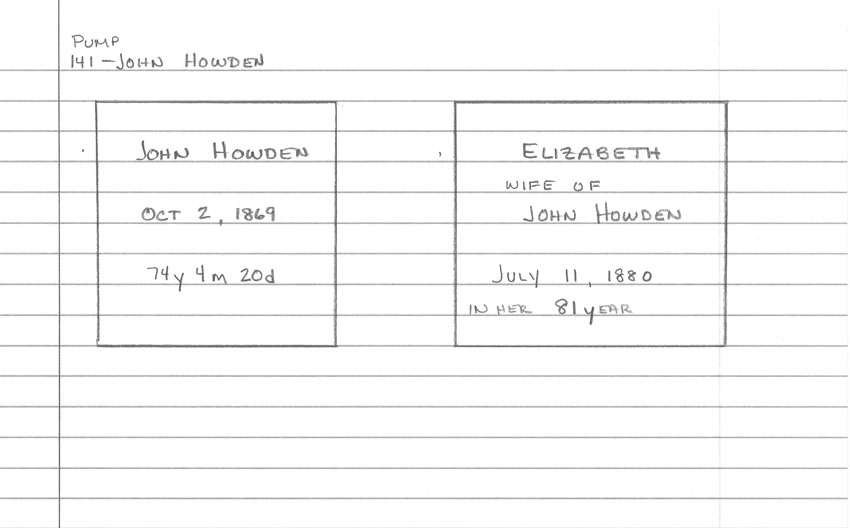 PUMP
141 - JOHN HOWDEN
JOHN HOWDEN
OCT 2, 1869
74y 4m 20d
ELIZABETH
WIFE OF
JOHN HOWDEN
JULY 11, 1880
IN HER 81 yEAR